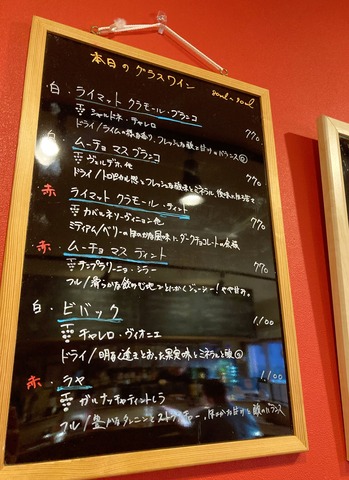 本日のグラスワイン
80ml~90ml
白・ライマット クラモール・ブランコ
シャルドネ・チャレロ 770
ドライ/ライムの
フレッシュな酸と甘みのバランス◎
白・ムーチョ マス ブランコ
ヴェルデホ 他 770
ドライ/トロピカル
フレッシュな酸味とミネラル
赤・ライマット クラモール・ティント
カベルネソーヴィニョン 他 770
ミディアム/ベリーの
風味に ダークチョコレートの余韻
赤・ムーチョ マス ティント
テンプラリーニョ・シラー 770
フル/滑らかな飲み心地でとにかくジューシー!やや甘め。
白・ビバック 1,100
チャレロ・ヴィオニエ
ドライ/明るく透きとおった果実味とミネラルと酸◎
赤・ラヤ 1,100
ガルナッチャティントレラ
フル/豊かなタンニンとストラクチャー。ほのかな甘みと酸のバランス